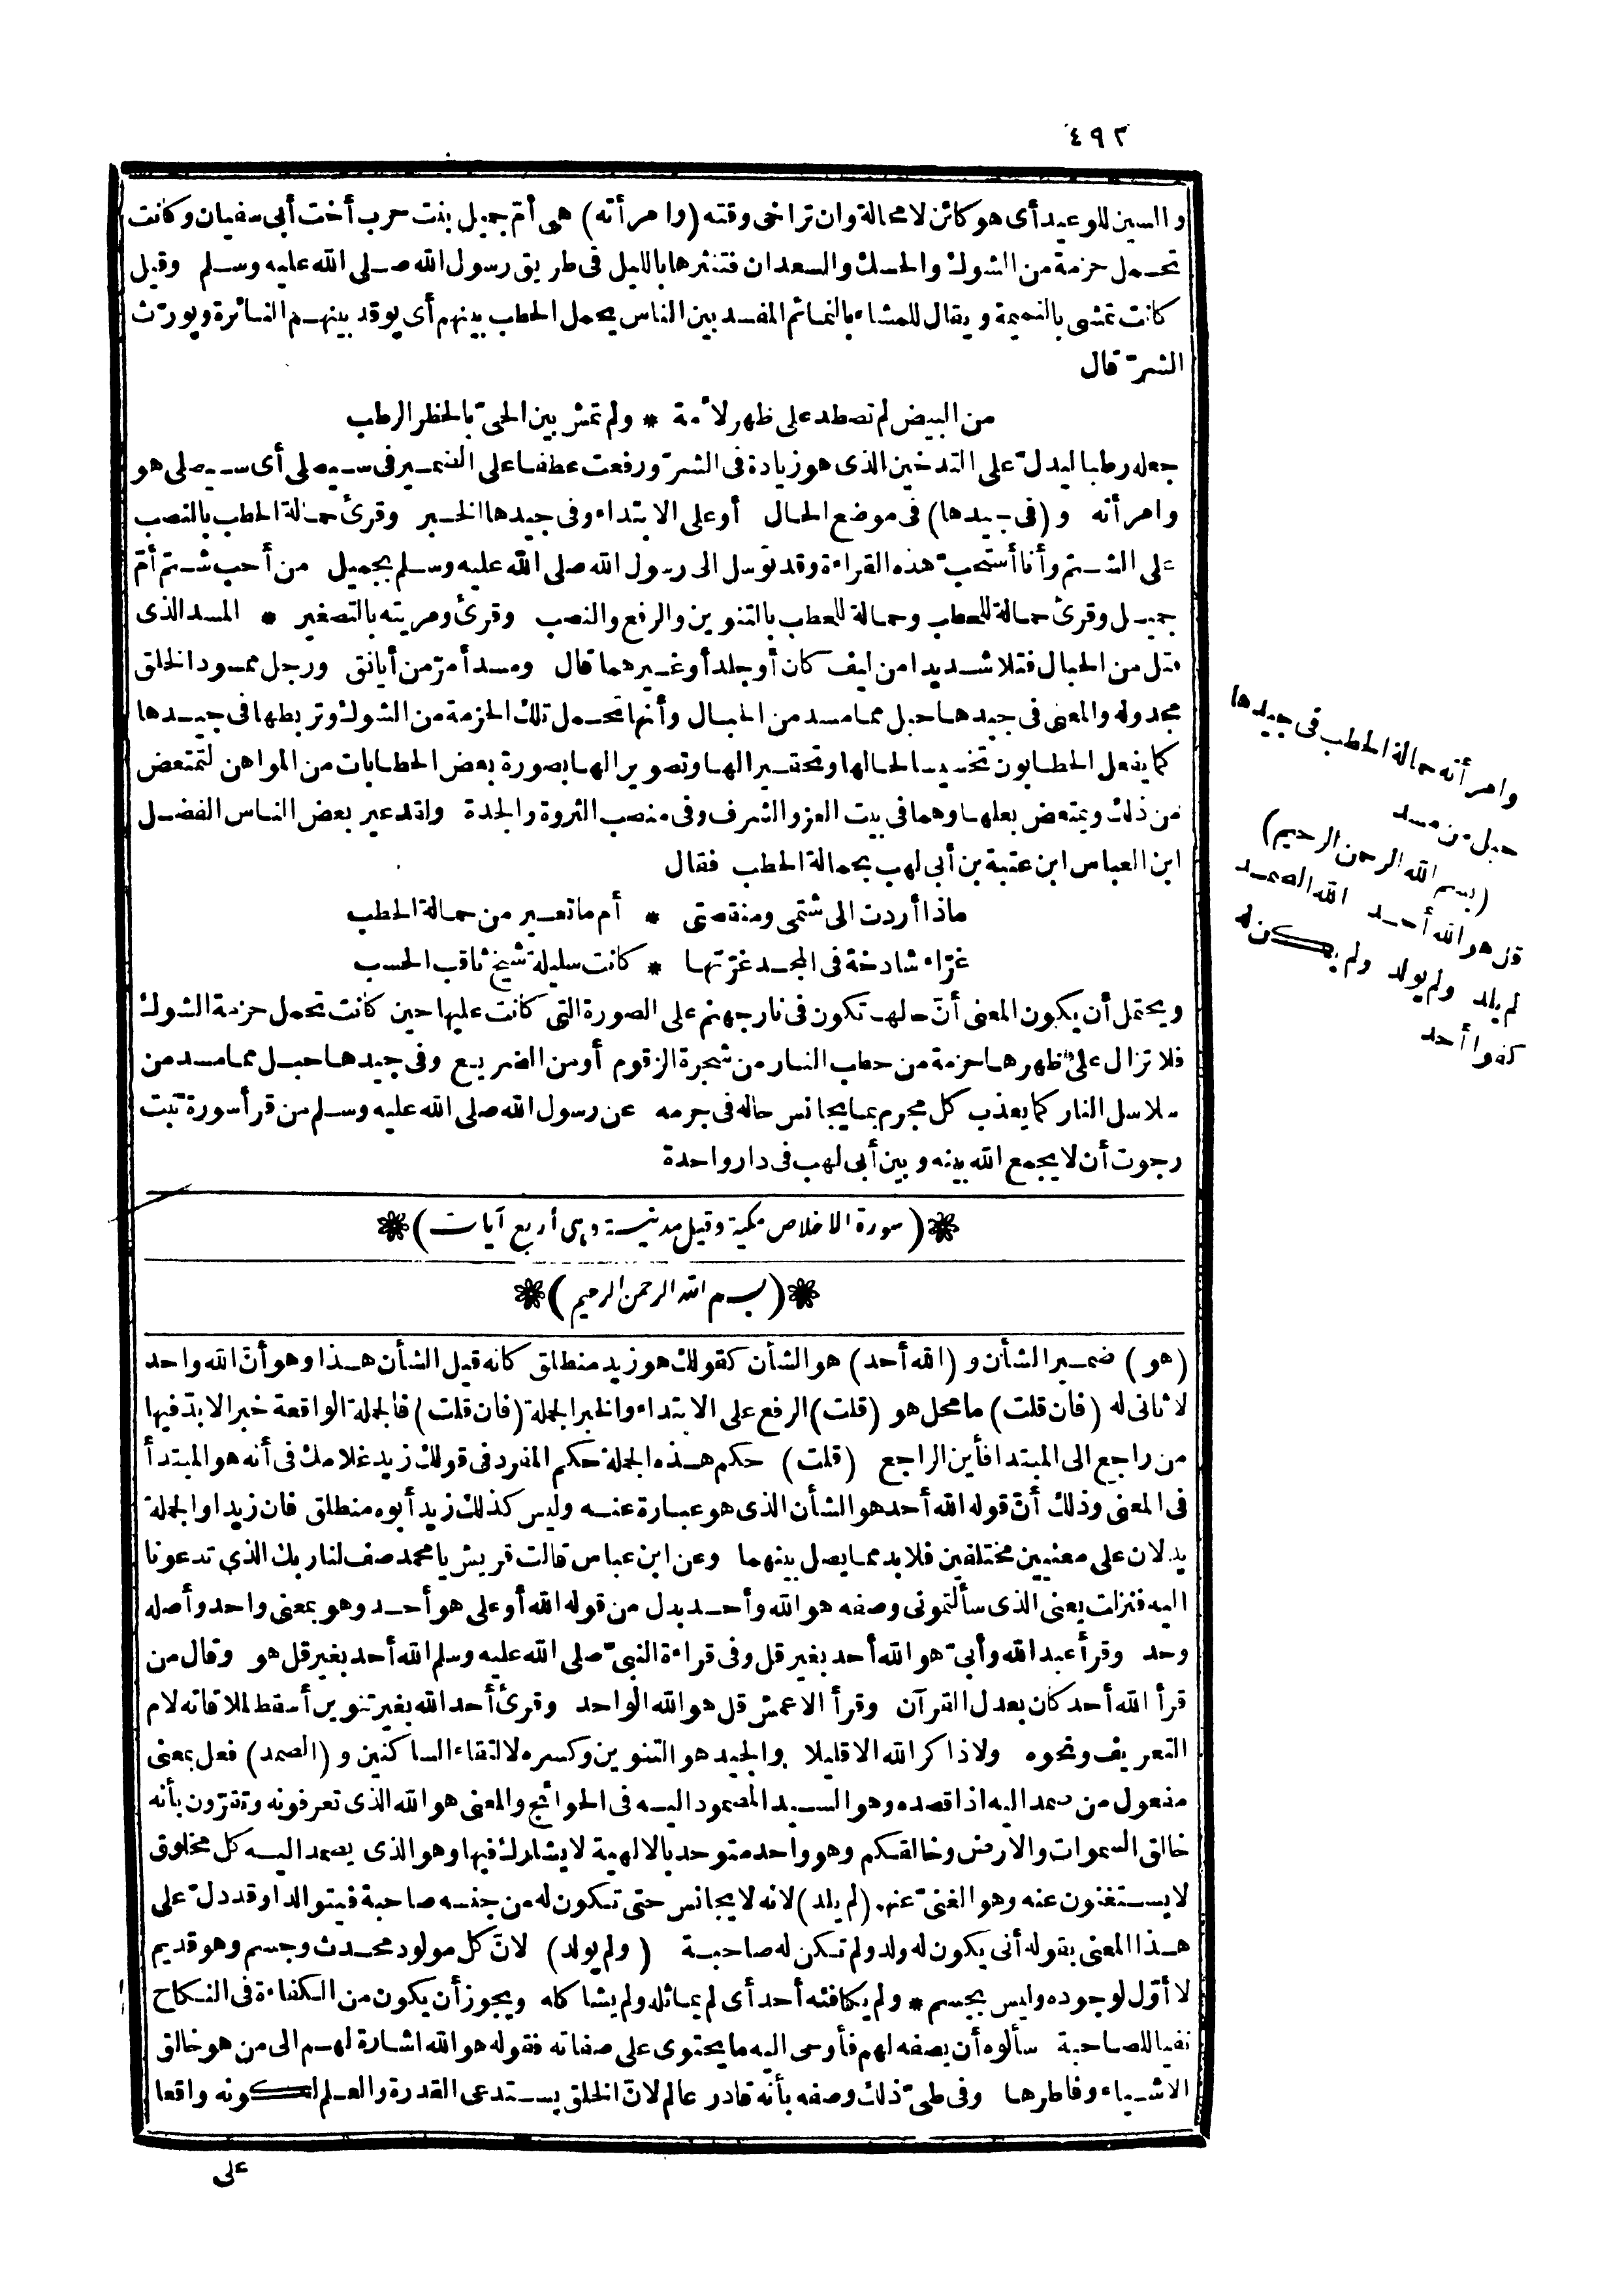 ٤٩٢
والسين للوعيد أى هو كائن لا محالة وان تراخى وقته (وامرأته) هى أمّ جميل بنت حرب أخت أبى سفيان وكانت
تحمل حزمة من الشوك والحسك والسعدان فتنثرها بالليل فى طريق رسول الله صلى الله عليه وسلم وقيل
كانت تمشى بالنميمة ويقال للمشاء بالنمائم المفسد بين الناس يحمل الحطب بينهم أى يوقد بينهم النائرة ويورّث
الشرّ قال
من البيض لم تصطد على ظهر لأمة * ولم تمش بين الحىّ بالحظر الرطب
جعله رطبا ليدلّ على التدخين الذى هو زيادة فى الشرّ ورفعت عطفا على الضمير فى سيصلى أى سيصلى هو
وامرأته و (فى جيدها) فى موضع الحال أو على الابتداء وفى جيدها الخبر وقرئ حمالة الحطب بالنصب
على الشتم وأنا أستحبّ هذه القراءة وقد توسل الى رسول الله صلى الله عليه وسلم بجميل من أحب شتم أمّ
جميل وقرئ حمالة للحطب وحمالة للحطب بالتنوين والرفع والنصب وقرئ ومريئته بالتصغير * المسد الذى
فتل من الحبال فتلا شديدا من ليف كان أو جلد أو غيرهما قال ومسد أمرّ من أيانق ورجل ممسود الخلق
مجدوله والمعنى فى جيدها حبل مما مسد من الحبال وأنها تحمل تلك الحزمة من الشوك وتربطها فى جيدها
كما يفعل الحطابون تخسيسا لحالها وتحقيرا لها وتصويرا لها بصورة بعض الحطابات من المواهن لتمتعض
من ذلك ويمتعض بعلها وهما فى بيت العز والشرف وفى منصب الثروة والجدة ولقد عير بعض الناس الفضل
ابن العباس ابن عتبة بن أبى لهب بحمالة الحطب فقال
ماذا أردت الى شتمى ومنقصتى * أم ما تعير من حمالة الحطب
غرّاء شادخة فى المجد غرّتها * كانت سليلة شيخ ثاقب الحسب
ويحتمل أن يكون المعنى أنّ حالها تكون فى نار جهنم على الصورة التى كانت عليها حين كانت تحمل حزمة الشوك
فلا تزال على ظهرها حزمة من حطب النار من شجرة الزقوم أو من الضريع وفى جيدها حبل مما مسد من
سلاسل النار كما يعذب كل مجرم بما يجانس حاله فى جرمه عن رسول الله صلى الله عليه وسلم من قرأ سورة تبت
رجوت أن لا يجمع الله بينه وبين أبى لهب فى دار واحدة
(سورة الاخلاص مكية وقيل مدنية وهى أربع آيات)
(بسم الله الرحمن الرحيم)
(هو) ضمير الشأن و (الله أحد) هو الشأن كقولك هو زيد منطلق كانه قيل الشأن هذا وهو أنّ الله واحد
لا ثانى له (فان قلت) ما محل هو (قلت) الرفع على الابتداء والخبر الجملة (فان قلت) فالجملة الواقعة خبرا لابدّ فيها
من راجع الى المبتدا فأين الراجع (قلت) حكم هذه الجملة حكم المفرد فى قولك زيد غلامك فى أنه هو المبتدأ
فى المعنى وذلك أنّ قوله الله أحد هو الشأن الذى هو عبارة عنه وليس كذلك زيد أبوه منطلق فان زيدا والجملة
يدلان على معنيين مختلفين فلابد مما يصل بينهما وعن ابن عباس قالت قريش يا محمد صف لنا ربك الذى تدعونا
اليه فنزلت يعنى الذى سألتمونى وصفه هو الله وأحد بدل من قوله الله أو على هو أحد وهو بمعنى واحد وأصله
وحد وقرأ عبد الله وأبىّ هو الله أحد بغير قل وفى قراءة النبىّ صلى الله عليه وسلم الله أحد بغير قل هو وقال من
قرأ الله أحد كان بعدل القرآن وقرأ الاعمش قل هو الله الواحد وقرئ أحد الله بغير تنوين أسقط لملاقاته لام
التعريف ونحوه ولا ذاكر الله الا قليلا والجيد هو التنوين وكسره لالتقاء الساكنين و (الصمد) فعل بمعنى
مفعول من صمد اليه اذا قصده وهو السيد المصمود اليه فى الحوائج والمعنى هو الله الذى تعرفونه وتقرّون بأنه
خالق السموات والارض وخالقكم وهو واحد متوحد بالالهية لا يشارك فيها وهو الذى يصمد اليه كل مخلوق
لا يستغنون عنه وهو الغنىّ عنهم (لم يلد) لانه لا يجانس حتى تكون له من جنسه صاحبة فيتوالدا وقد دلّ على
هذا المعنى بقوله أنى يكون له ولد ولم تكن له صاحبة (ولم يولد) لانّ كل مولود محدث وجسم وهو قديم
لا أوّل لوجوده وليس بجسم * ولم يكافئه أحد أى لم يماثله ولم يشاكله ويجوز أن يكون من الكفاءة فى النكاح
نفيا للصاحبة سألوه أن يصفه لهم فأوحى اليه ما يحتوى على صفاته فقوله هو الله اشارة لهم الى من هو خالق
الاشياء وفاطرها وفى طىّ ذلك وصفه بأنه قادر عالم لانّ الخلق يستدعى القدرة والعلم لكونه واقعا
على
وامرأته حمالة الحطب فى جيدها
حبل من مسد
(بسم الله الرحمن الرحيم)
قل هو الله أحد الله الصمد
لم يلد ولم يولد ولم يكن له
كفوا أحد